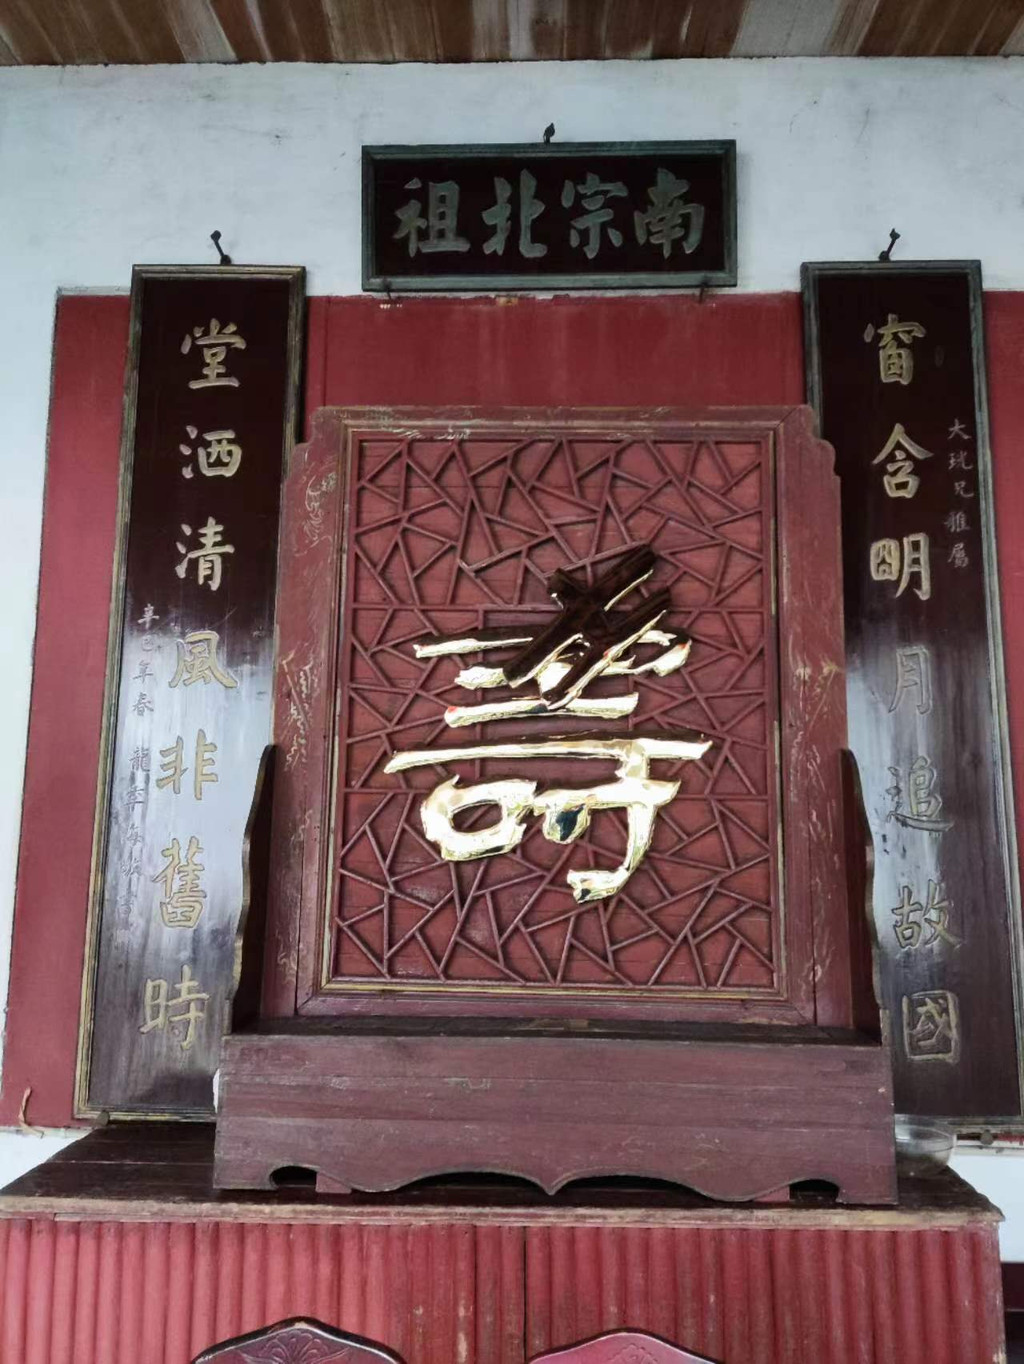 南宗北祖
窗含明月追故國
大珖兄雅屬
壽
堂洒清風非舊時
辛巳年春